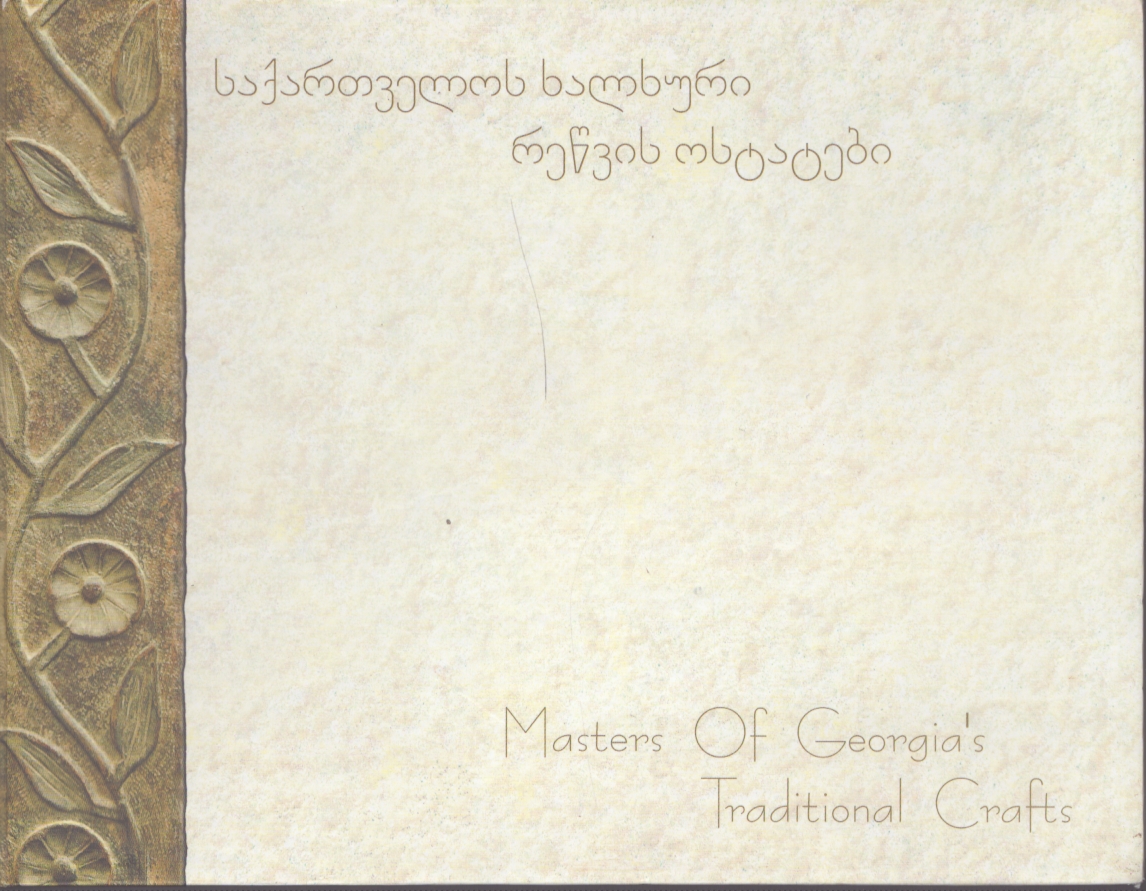 საქართველოს ხალხური
რეწვის ოსტატები
Masters Of Georgia's
Traditional Crafts